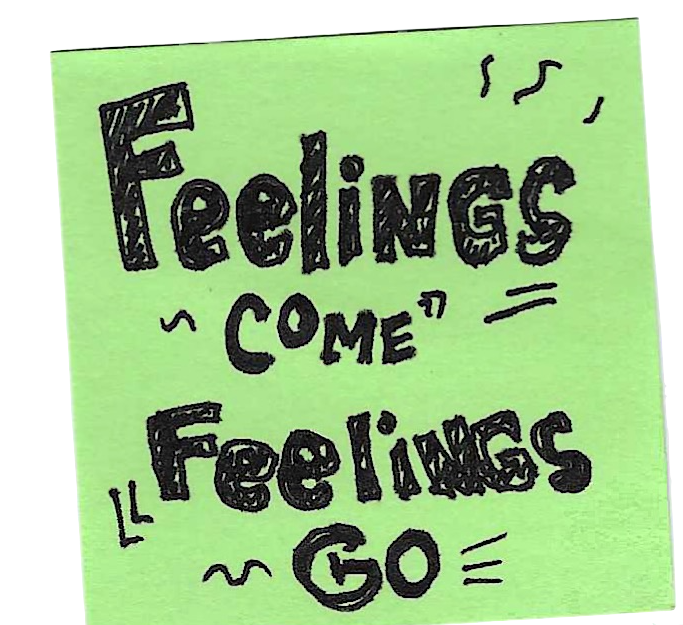 Feelings
COME
Feelings
GO